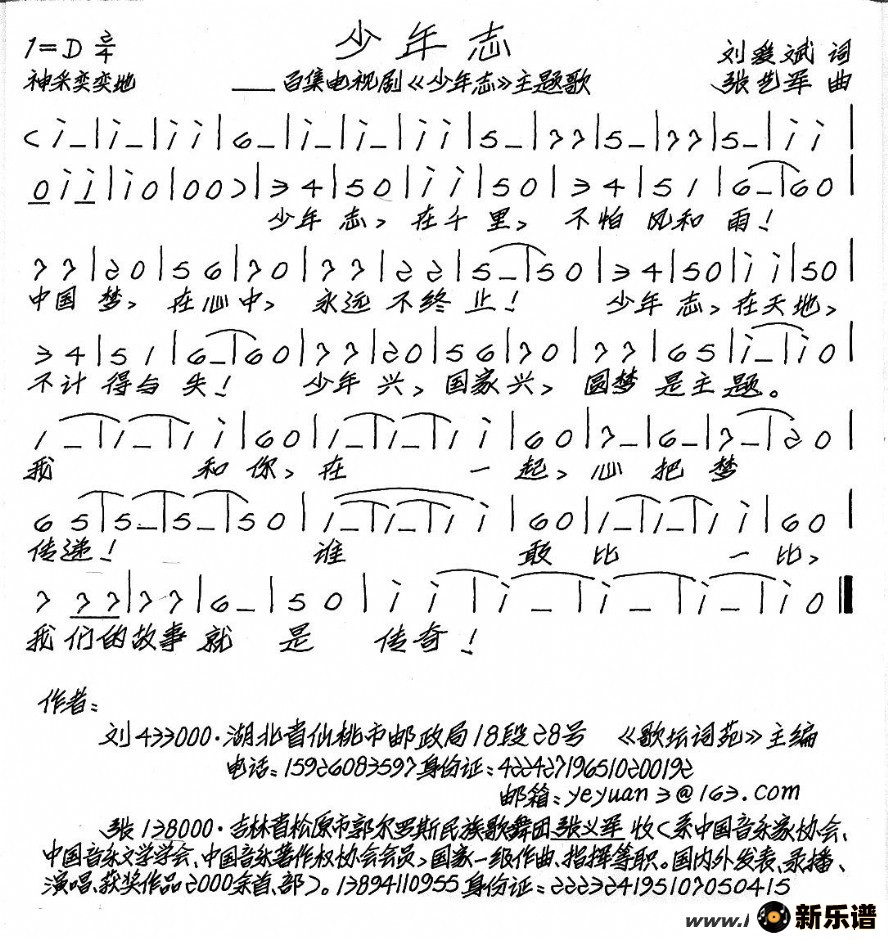 1=D 2/4 少年志 刘爱斌 词
神采奕奕地 ——百集电视剧《少年志》主题歌 张艺军 曲
< i – | i – | i i | 6 – | i – | i – | i i | 5 – | 7 7 | 5 – | 7 7 | 5 – | i i |
0 i i | i 0 | 0 0 > | 3 4 | 5 0 | i i | 5 0 | 3 4 | 5 1 | 6 – | 6 0 |
少年 志, 在千 里, 不怕 风和 雨!
7 7 | 2 0 | 5 6 | 7 0 | 7 7 | 2 2 | 5 – | 5 0 | 3 4 | 5 0 | i i | 5 0 |
中国 梦, 在心 中, 永远 不终 止! 少年 志, 在天 地,
3 4 | 5 1 | 6 – | 6 0 | 7 7 | 2 0 | 5 6 | 7 0 | 7 7 | 6 5 | i – | i 0 |
不计 得与 失! 少年 兴, 国家 兴, 圆梦 是主 题。
i – | i – | i i | 6 0 | i – | i – | i i | 6 0 | 7 – | 6 – | 7 – | 2 0 |
我 和 你, 在 一 起, 心 把 梦
6 5 | 5 – | 5 – | 5 0 | i – | i – | i i | 6 0 | i – | i – | i i | 6 0 |
传递! 谁 敢 比 一 比,
7 7 7 | 7 7 | 6 – | 5 0 | i i | i – | i – | i – | i 0 ‖
我们的故事 就 是 传奇!
作者:
刘 433000·湖北省仙桃市邮政局18段28号 《歌坛词苑》主编
电话:15926083597身份证:422427196510200192
邮箱:yeyuan3@163.com
张 138000·吉林省松原市郭尔罗斯民族歌舞团张义军 收<系中国音乐家协会、
中国音乐文学学会、中国音乐著作权协会会员,国家一级作曲、指挥等职。国内外发表、录播、
演唱、获奖作品2000余首、部>。13894110955身份证:222324195107050415
www.
新乐谱